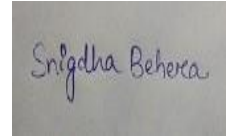 Snigdha Behera